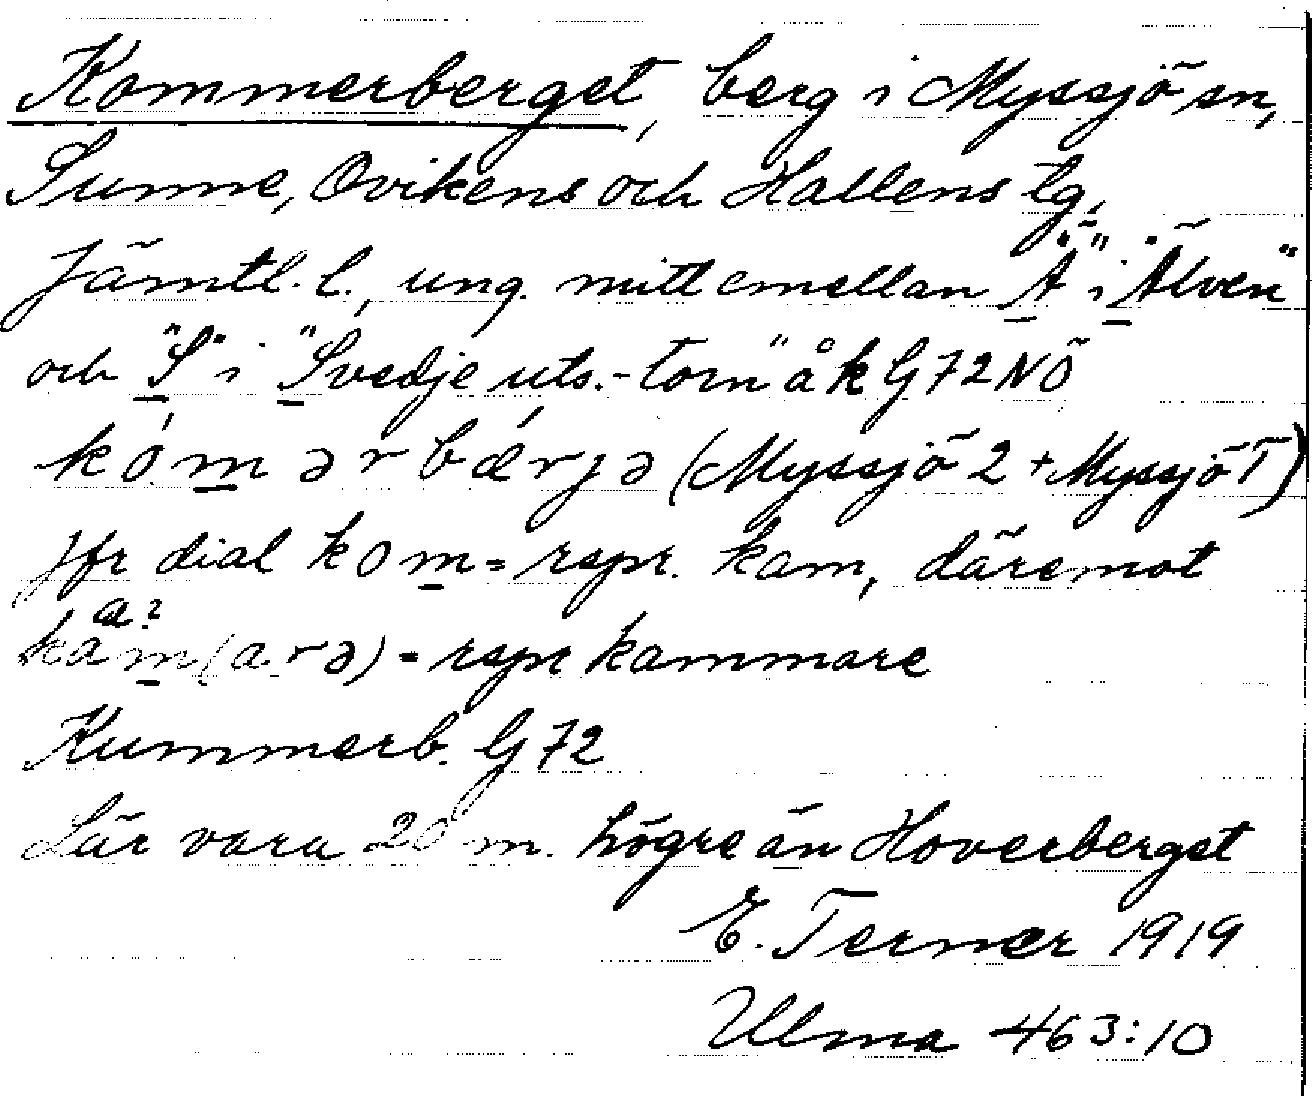 Kommerberget, berg i Myssjö sn,
Sunne, Ovikens och Hallens tg,
Jämtl. l., ung. mitt emellan "Ä" i "Älven"
och "S" i "Svedje uts.-torn" å k G72NÖ
kómərbǽrjə (Myssjö 2 + Myssjö T)
jfr dial kom = rspr. kam, däremot
kam(arə) = rspr kammare
Kummerb. G72
Lär vara 20 m. högre än Hoverberget
E. Terner 1919
Ulma 463:10